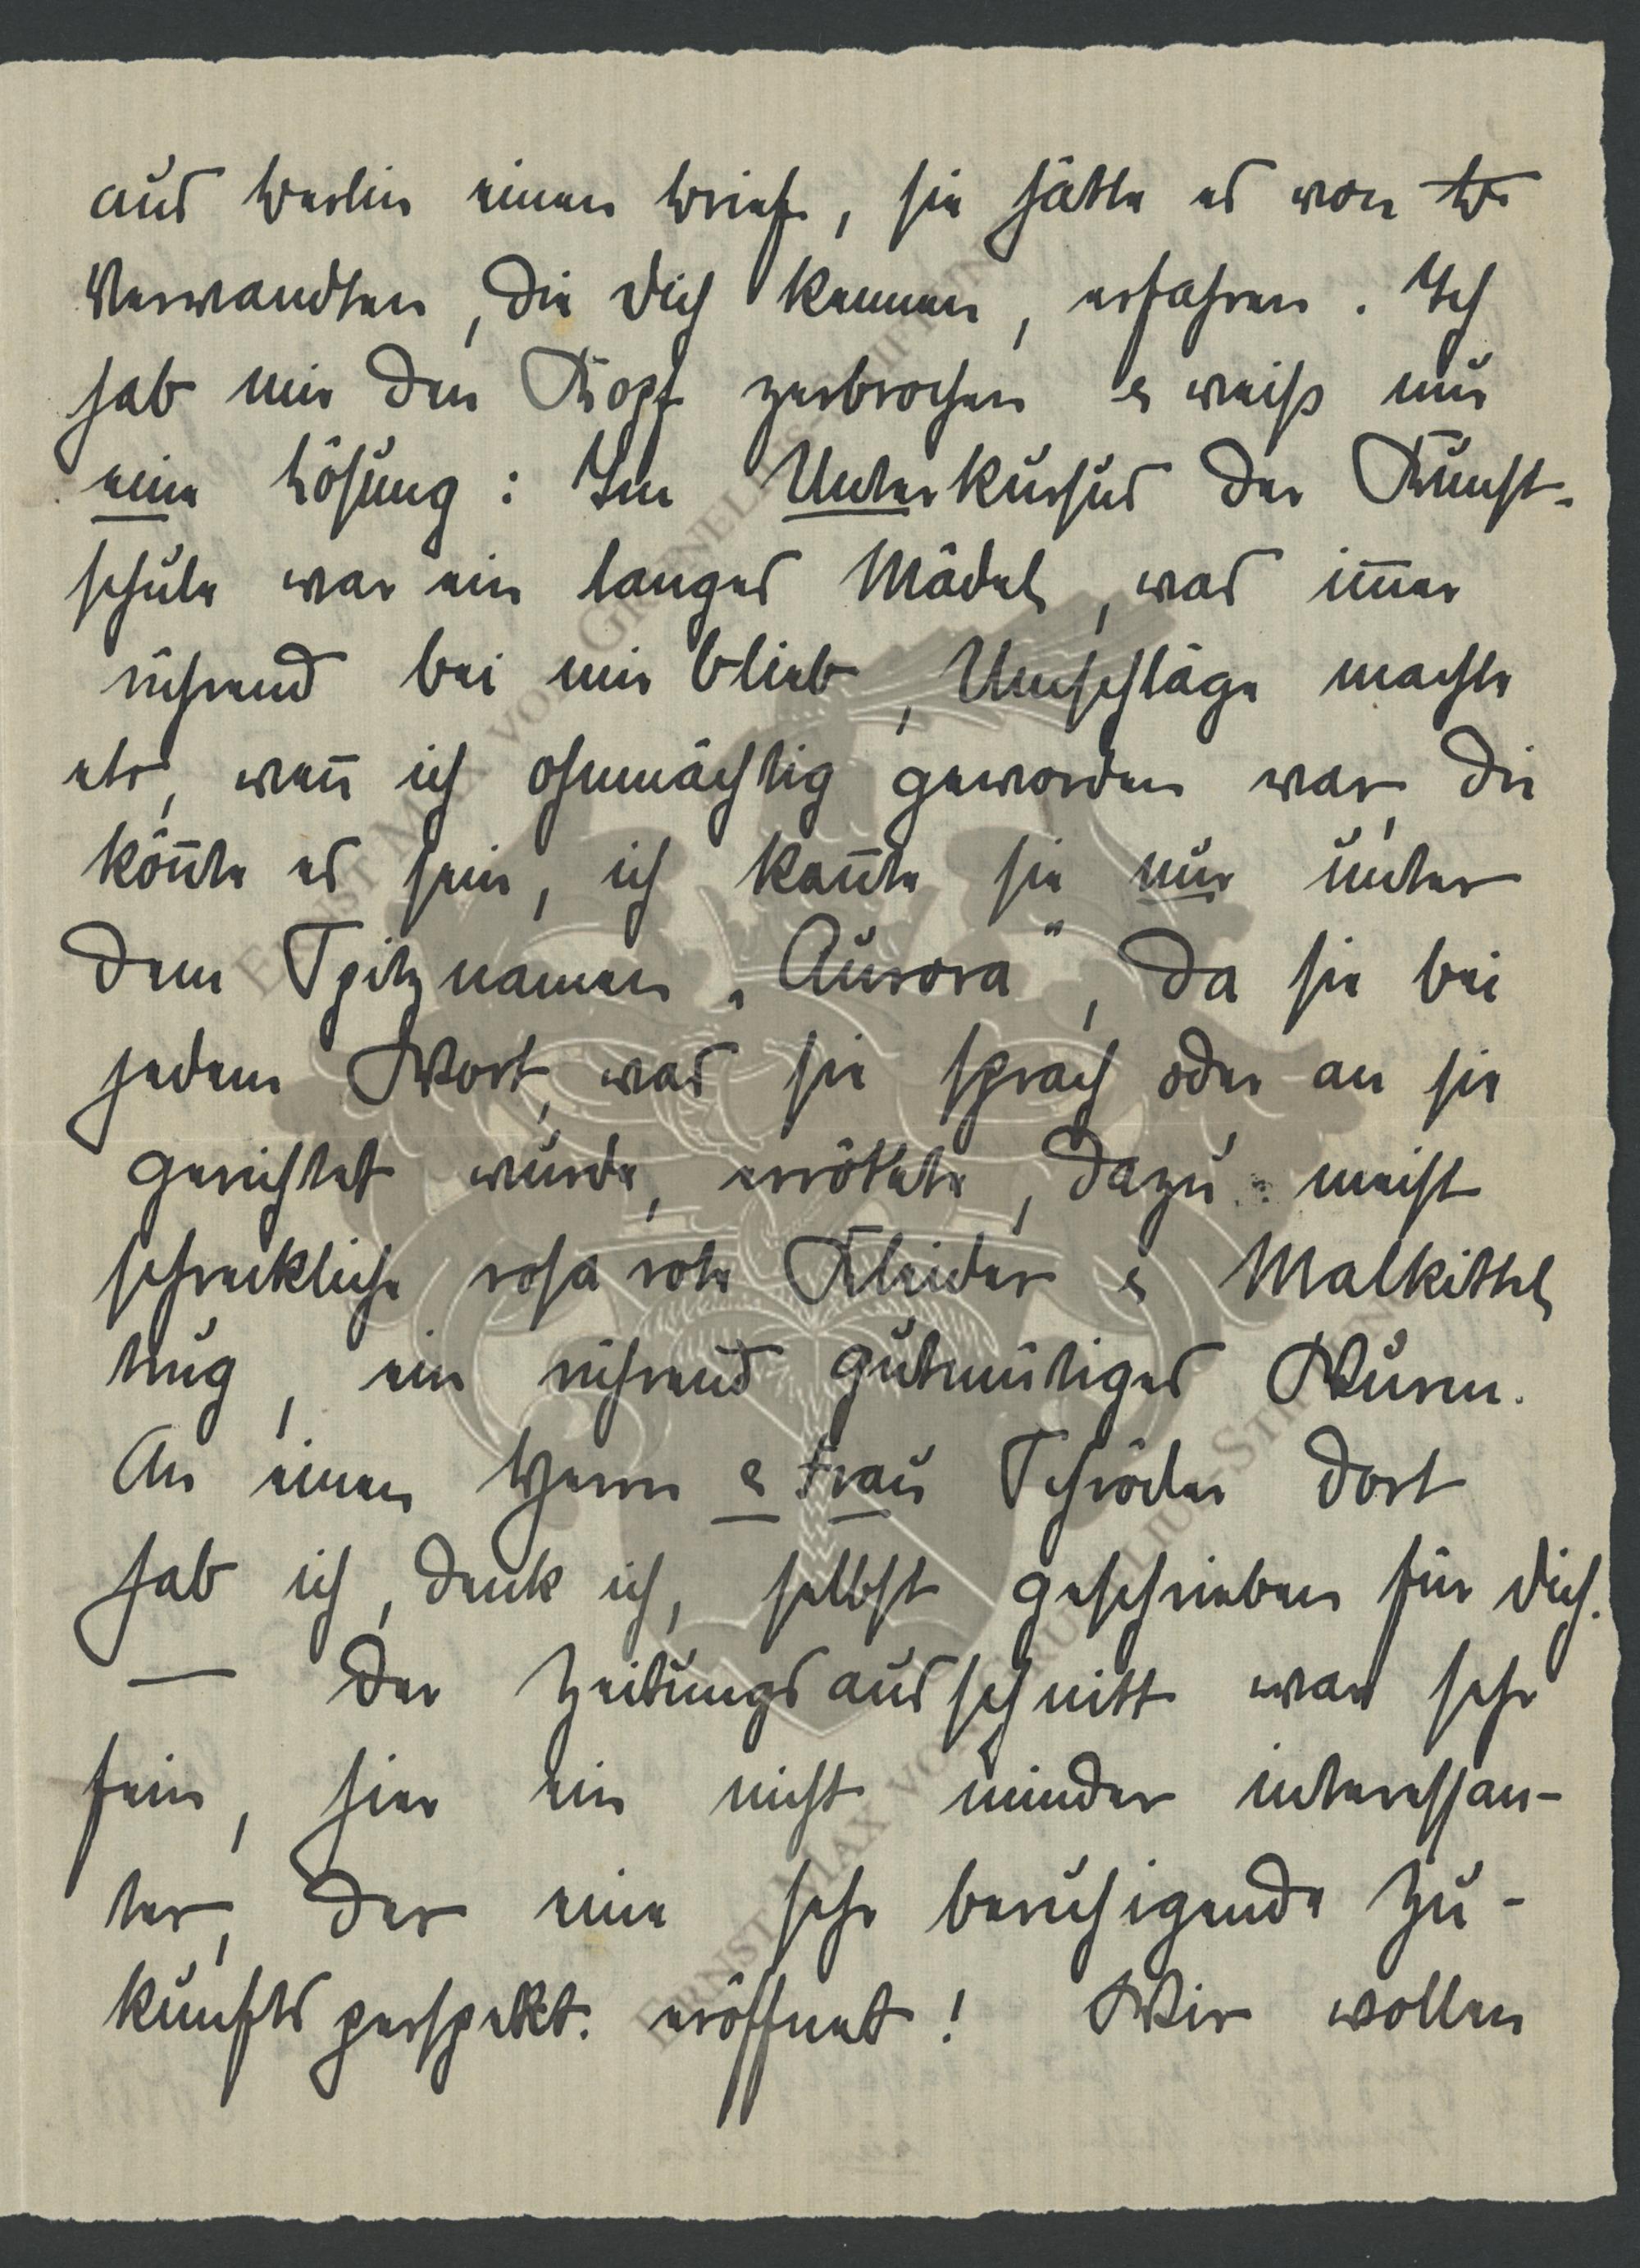 aus Berlin einen Brief, sie hätte es von B.
Verwandten, die Dich kennen, erfahren. Ich
hab mir den Kopf zerbrochen & weiss nur
eine Lösung: Im Unterkursus der Kunst-
schule war ein langes Mädel, was im̅er
rührend bei mir blieb, Umschläge machte
etc, wen̅ ich ohnmächtig geworden war, die
kön̅te es sein, ich kan̅te sie nur unter
dem Spitznamen „Aurora", da sie bei
jedem Wort, was sie sprach oder an sie
gerichtet wurde, errötete, dazu meist
schreckliche rosa rote Kleider & Malkittel
trug, ein rührend gutmütiges Wurm.
An einen Herrn & Frau Schröder dort
hab ich, denk ich, selbst geschrieben für Dich.
— Der Zeitungsausschnitt war sehr
fein, hier ein nicht minder interessan-
ter, der eine sehr beruhigende Zu-
kunftsperspekt. eröffnet! Wir wollen
ERNST MAX VON GRUNELIUS-STIFTUNG
ERNST MAX VON GRUNELIUS-STIFTUNG